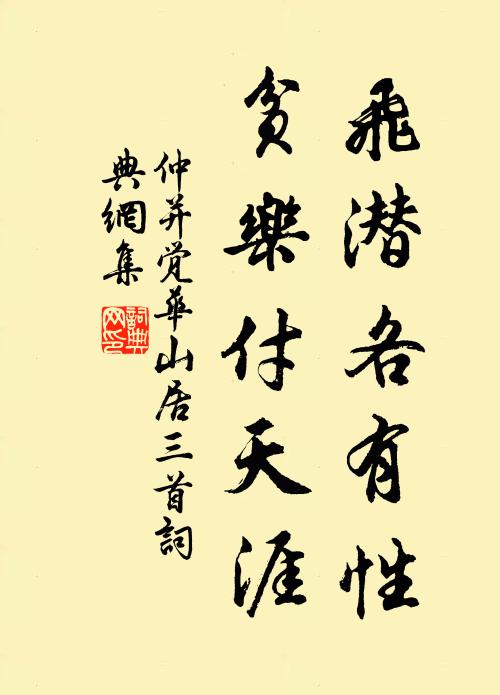 飛潜各有性
貧樂付天涯
仲并覺華山居三首詞
典網集
詞典
网印